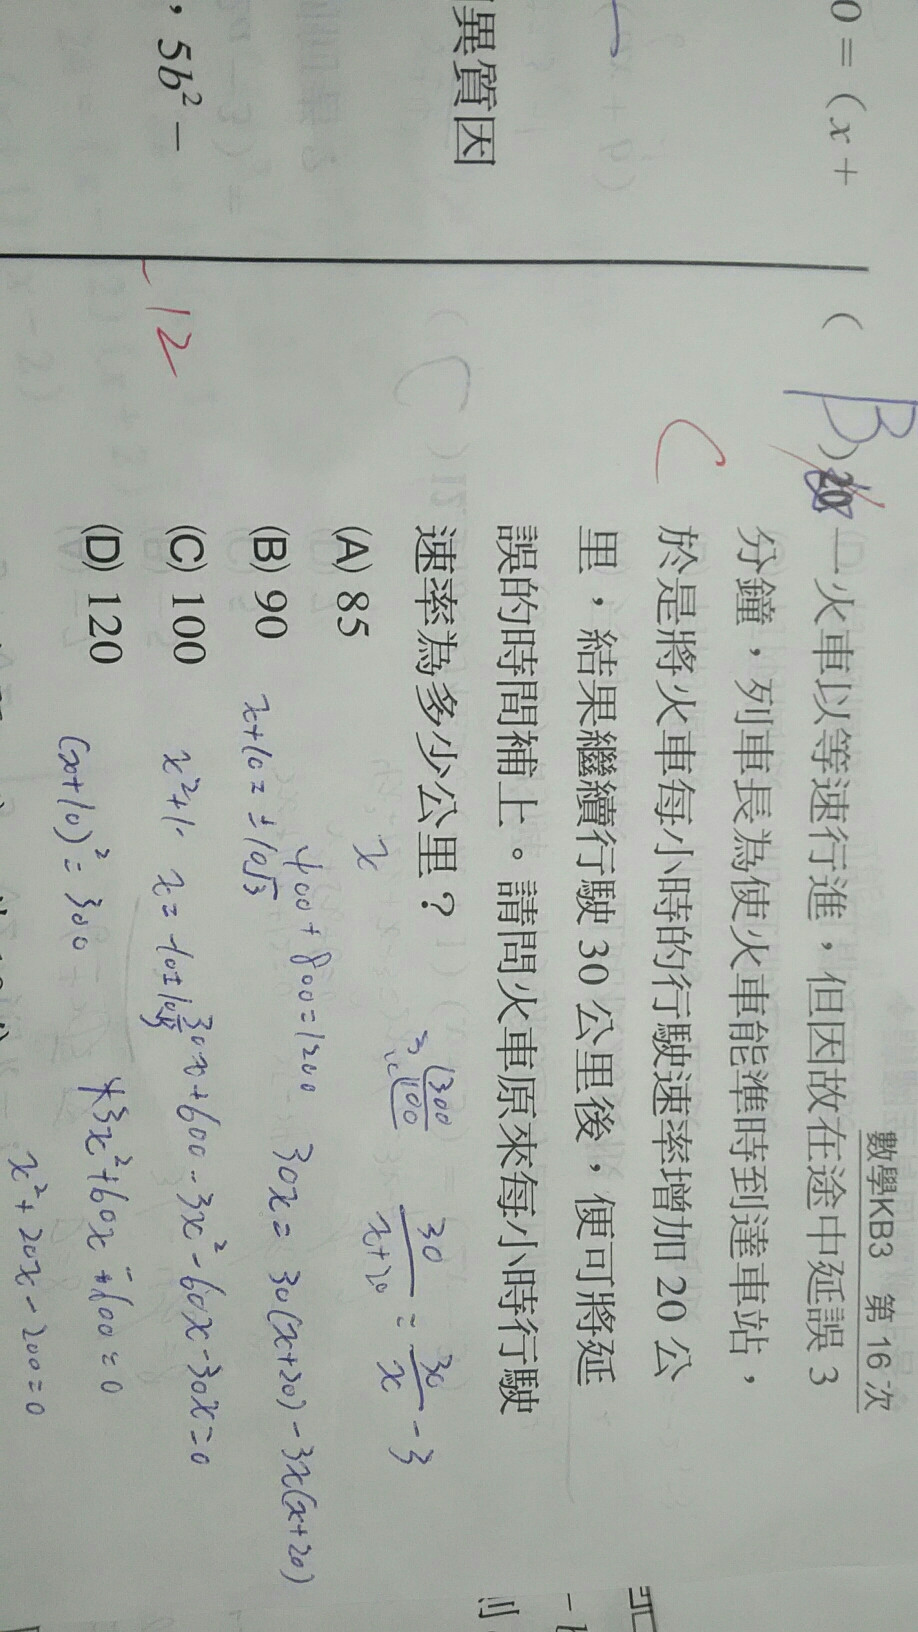 0 = (x +
異質因
, 5b² −
數學KB3 第 16 次
( B )20 一火車以等速行進，但因故在途中延誤 3
分鐘，列車長為使火車能準時到達車站，
於是將火車每小時的行駛速率增加 20 公
里，結果繼續行駛 30 公里後，便可將延
誤的時間補上。請問火車原來每小時行駛
速率為多少公里？
(A) 85
(B) 90
(C) 100
(D) 120
C
-12
x
30/(x+20) = 30/x - 3
400 + 800 = 1200
30x = 30(x+20) - 3x(x+20)
x+10 = ±10√3
30x + 600 - 3x² - 60x - 30x = 0
(x+10)² = 300
3x² + 60x - 600 = 0
x² + 20x - 200 = 0